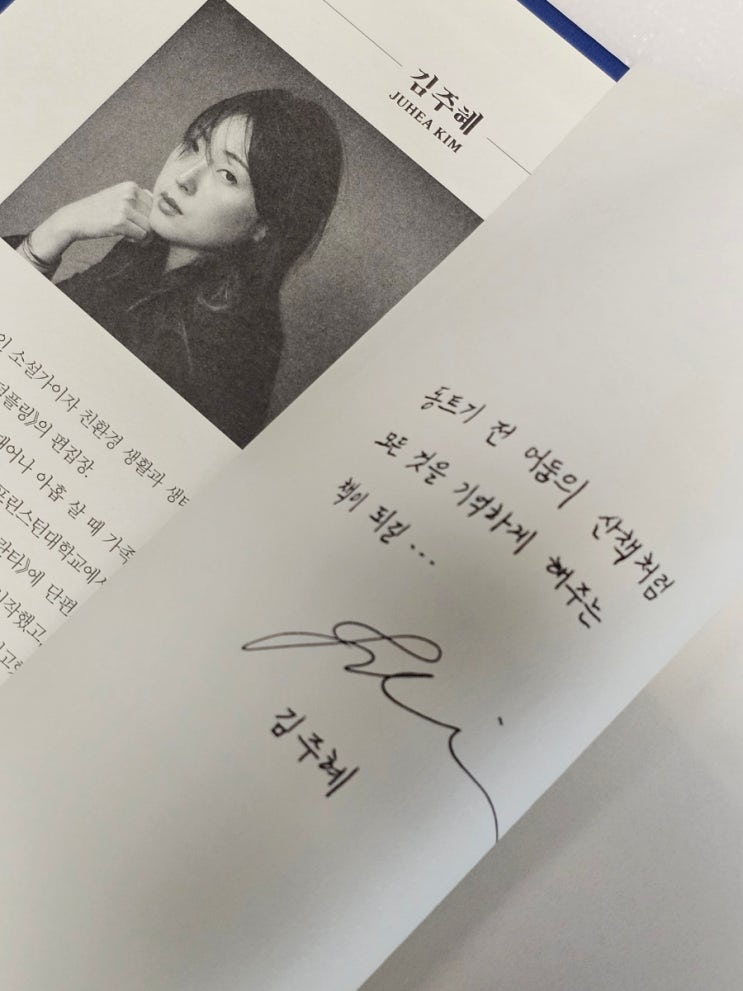 김주혜
JUHEA KIM
인 소설가이자 친환경 생활과 생태
플링》의 편집장.
태어나 아홉 살 때 가족
프린스턴대학교에서
란타》에 단편
시작했고,
동트기 전 어둠의 산책처럼
모든 것을 기억하게 해주는
책이 되길...
김주혜